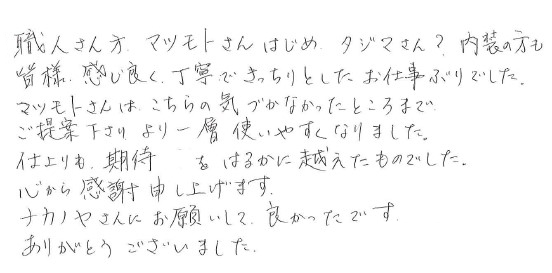 職人さん方、マツモトさんはじめ、タジマさん？、内装の方も
皆様、感じ良く、丁寧できっちりとしたお仕事ぶりでした。
マツモトさんは、こちらの気づかなかったところまで
ご提案下さり より一層 使いやすくなりました。
仕上りも、期待 をはるかに越えたものでした。
心から感謝申し上げます。
ナカノヤさんにお願いして、良かったです。
ありがとうございました。